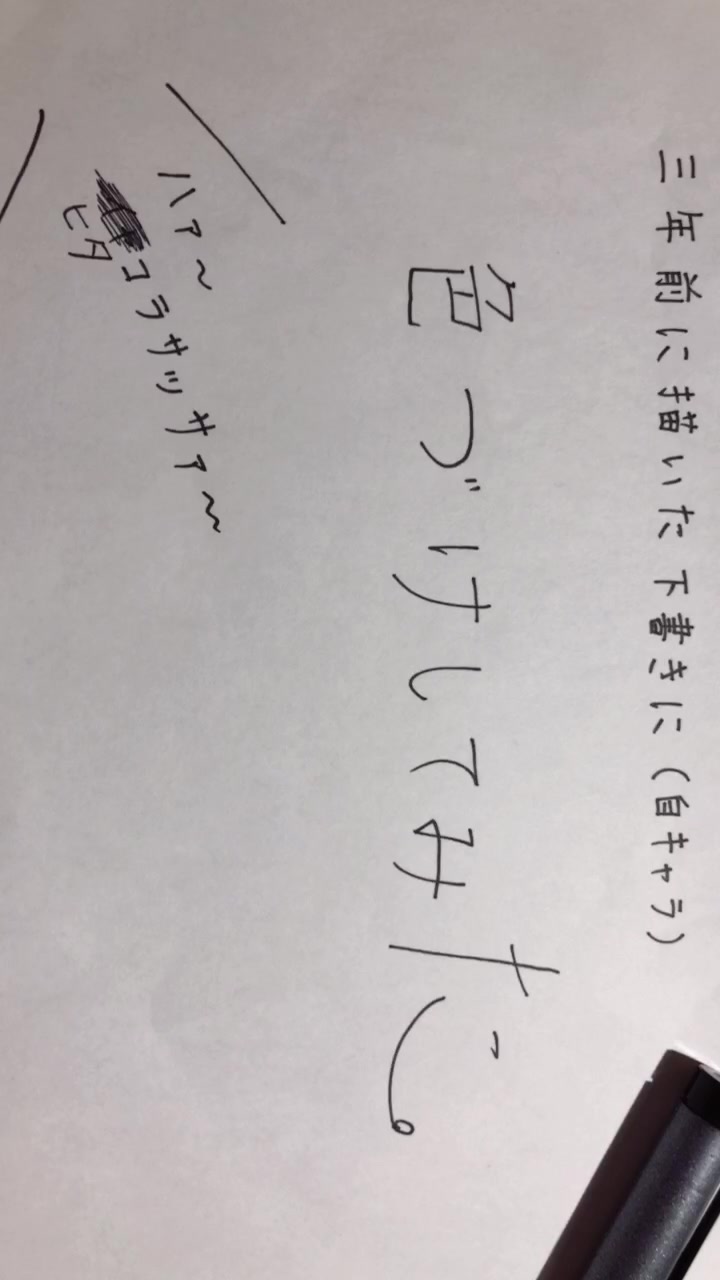 三年前に描いた下書きに(自キャラ)
色づけしてみた。
ハァ〜
ヒタコラサッサァ〜